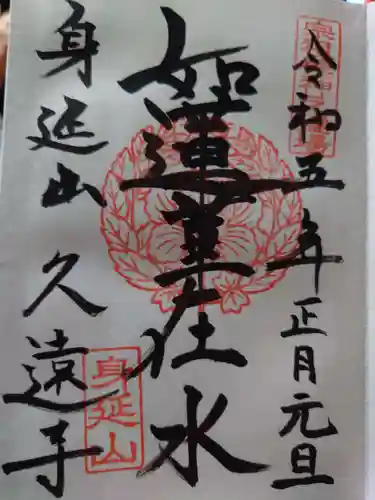 令和五年正月元旦
如蓮華在水
身延山 久遠寺
身延山